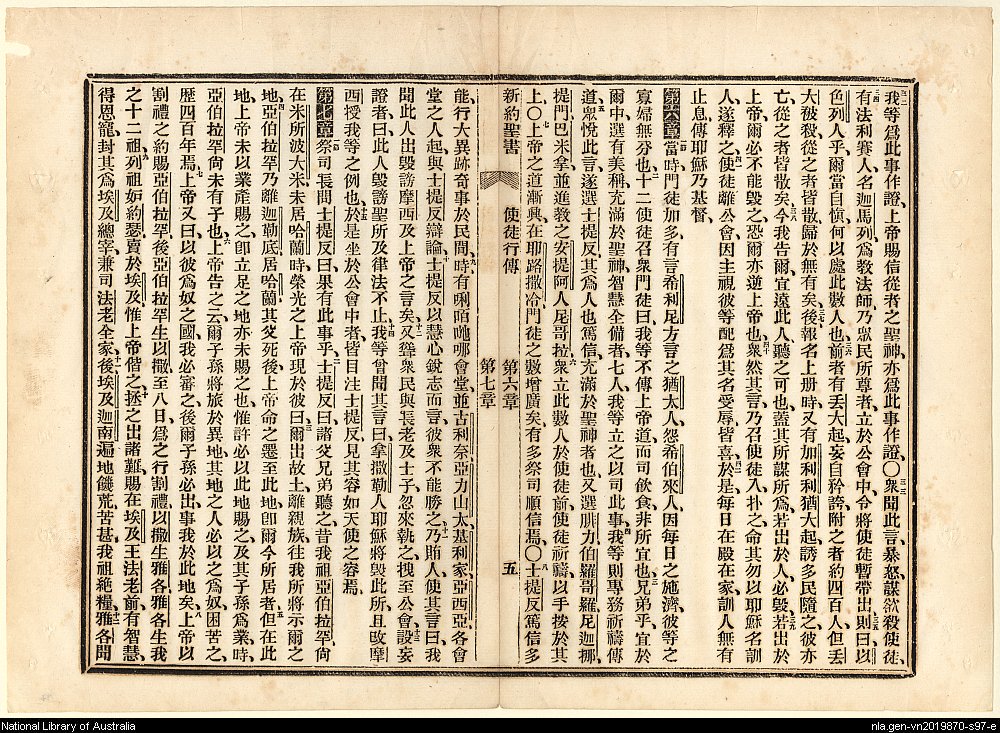 我等爲此事作證、上帝賜信從者之聖神、亦爲此事作證、〇衆聞此言、暴怒、謀欲殺使徒、
有法利賽人、名迦馬列、爲教法師、乃衆民所尊者、立於公會中、令將使徒暫帶出、則曰、以
色列人乎、爾當自愼、何以處此數人也、前者有丟大起、妄自矜誇、附之者約四百人、但丟
大被殺、從之者皆散、歸於無有矣、後報名上册時、又有加利利猶大起、誘多民隨之、彼亦
亡、從之者皆散矣、今我告爾、宜遠此人、聽之可也、蓋其所謀所爲、若出於人、必毀、若出於
上帝、爾必不能毀之、恐爾亦逆上帝也、衆然其言、乃召使徒入、扑之、命其勿以耶穌名訓
人、遂釋之、使徒離公會、因主視彼等配爲其名受辱、皆喜、於是每日在殿在家、訓人無有
止息、傳耶穌乃基督、
第六章當時門徒加多、有言希利尼方言之猶太人、怨希伯來人、因每日之施濟、彼等之
寡婦無分也、十二使徒召衆門徒曰、我等不傳上帝道、而司飲食、非所宜也、兄弟乎、宜於
爾中選有美稱、充滿於聖神、智慧全備者七人、我等立之以司此事、我等則專務祈禱傳
道、衆悅此言、遂選士提反、其爲人也篤信、充滿於聖神者也、又選腓力伯羅哥羅尼迦挪、
提門巴米拿、並進教之安提阿人尼哥拉、衆立此數人於使徒前、使徒祈禱、以手按於其
上、〇上帝之道漸興、在耶路撒冷門徒之數增廣矣、有多祭司順信焉、〇士提反篤信多
新約聖書 使徒行傳 第六章 第七章 五
能、行大異跡奇事於民間、時有唎咟哋哪會堂、並古利奈亞力山太基利家亞西亞各會
堂之人起、與士提反辯論、士提反以慧心銳志而言、彼衆不能勝之、乃賄人使其言曰、我
聞此人出毀謗摩西及上帝之言矣、又聳衆民與長老及士子、忽來執之、拽至公會、設妄
證者曰、此人毀謗聖所及律法不止、我等曾聞其言曰、拿撒勒人耶穌將毀此所、且改摩
西授我等之例也、於是坐於公會中者、皆目注士提反、見其容如天使之容焉、
第七章祭司長問士提反曰、果有此事乎、士提反曰、諸父兄弟聽之、昔我祖亞伯拉罕、尙
在米所波大米、未居哈蘭時、榮光之上帝現於彼曰、爾出故土、離親族、往我所將示爾之
地、亞伯拉罕乃離迦勒底、居哈蘭、其父死後、上帝命之遷至此地、卽爾今所居者、但在此
地上帝未以業產賜之、卽立足之地亦未賜之也、惟許必以此地賜之及其子孫爲業、時
亞伯拉罕尙未有子也、上帝告之云、爾子孫將旅於異地、其地之人必以之爲奴、困苦之、
歷四百年焉、上帝又曰、以彼爲奴之國、我必審之、後爾子孫必出、事我於此地矣、上帝以
割禮之約賜亞伯拉罕、後亞伯拉罕生以撒、至八日爲之行割禮、以撒生雅各、雅各生我
之十二祖、列祖妒約瑟、賣於埃及、惟上帝偕之、拯之出諸難、賜在埃及王法老前有智慧、
得恩寵、封其爲埃及總宰、兼司法老全家、後埃及迦南遍地饑荒苦甚、我祖絶糧、雅各聞
National Library of Australia
nla.gen-vn2019870-s97-e